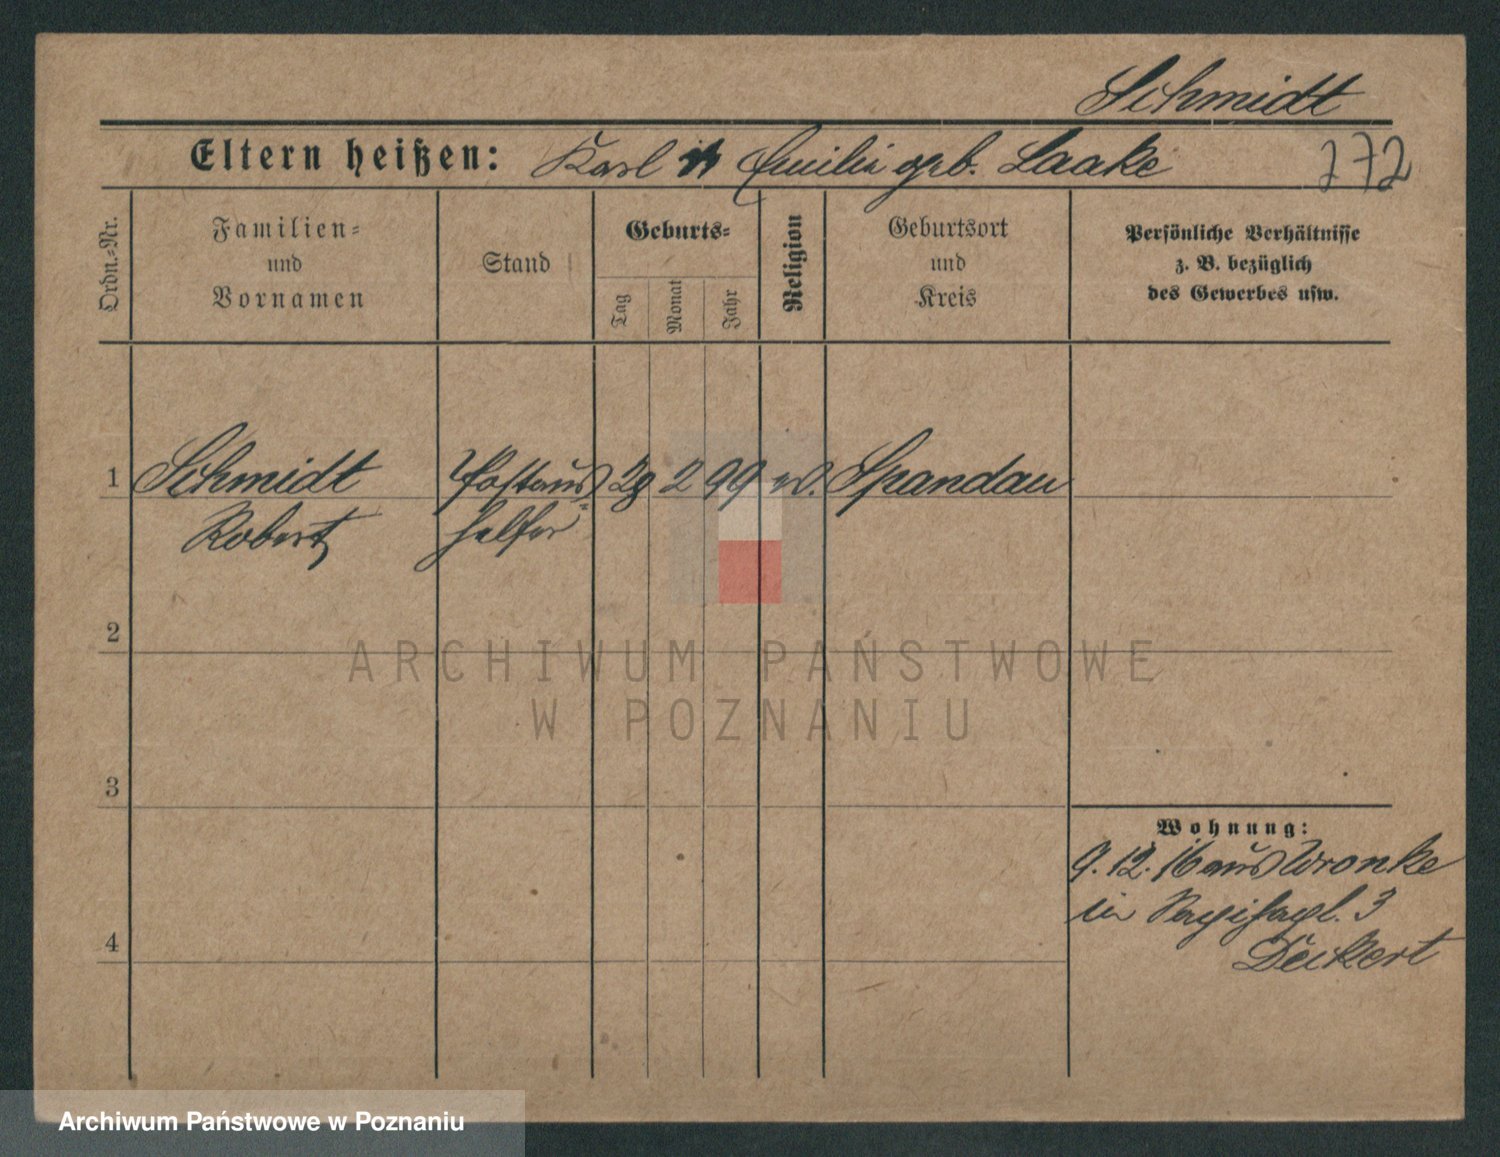 Schmidt
Eltern heißen: Karl u Emilie geb. Laake
772
Ordn.-Nr.
Familien-
und
Vornamen
Stand
Geburts-
Tag
Monat
Jahr
Religion
Geburtsort
und
Kreis
Persönliche Verhältnisse
z. B. bezüglich
des Gewerbes usw.
1 Schmidt Postaus= 28 2 99 Spandau
Robert helfer
2
3
4
Wohnung:
9.12.16 aus Wronke
in 3
Deikert
ARCHIWUM PAŃSTWOWE
W POZNANIU
Archiwum Państwowe w Poznaniu